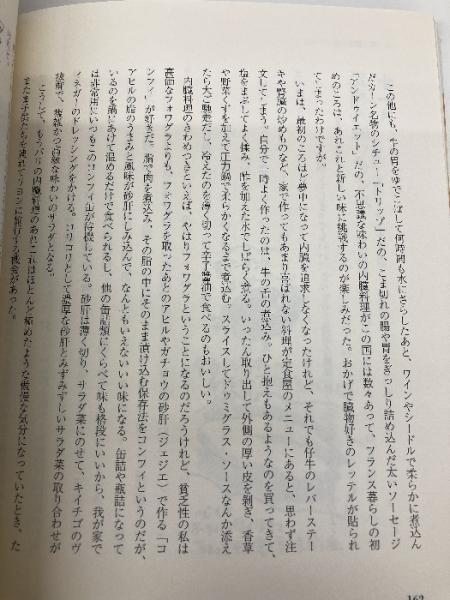 この他にも、牛の胃をゆでこぼして何時間も水にさらしたあと、ワインやシードルで柔らかに煮込ん
だカーン名物のシチュー「トリップ」だの、こま切れの腸や胃をぎっしり詰め込んだ太いソーセージ
「アンドゥイエット」だの、不思議な味わいの内臓料理がこの国には数々あって、フランス暮らしの初
めのころは、あれこれと新しい味に挑戦するのが楽しみだった。おかげで臓物好きのレッテルが貼られ
てしまったわけですが。
いまは、最初のころほど夢中になって内臓を追求しなくなったけれど、それでも仔牛のレバーステー
キや腎臓の炒めものなど、家で作ってもあまり喜ばれない料理が定食屋のメニューにあると、思わず注
文してしまう。自分で一時よく作ったのは、牛の舌の煮込み。ひと抱えもあるようなのを買ってきて、
塩をまぶしてよく揉み、酢を加えた水でしばらく煮る。いったん取り出して外側の厚い皮を剝ぎ、香草
や野菜くずを加えて圧力鍋で柔らかくなるまで煮込む。スライスしてドゥミグラス・ソースなんか添え
たら大ご馳走だし、冷えたのを薄く切って辛子醬油で食べるのもおいしい。
内臓料理のきわめつきといえば、やはりフォワグラということになるのだろうけれど、貧乏性の私は
高価なフォワグラよりも、フォワグラを取ったあとのアヒルやガチョウの砂肝（ジェジエ）で作る「コ
ンフィ」が好きだ。脂で肉を煮込み、その脂の中にそのまま漬け込む保存法をコンフィというのだが、
アヒルの脂のうまみと風味が砂肝にしみ込んで、なんともいえないいい味になる。缶詰や瓶詰になって
いるのを鍋にあけて温めるだけで食べられるし、他の缶詰類にくらべて味も格段にいいから、我が家で
は非常用にいつもこのコンフィ缶が待機している。砂肝は薄く切り、サラダ菜にのせて、キイチゴのヴ
ィネガーのドレッシングをかける。コリコリとして濃厚な砂肝とみずみずしいサラダ菜の取り合わせが
抜群で、複雑かつ奇敵な味わいのサラダとなる。
ところで、もうパリの内臓料理のあれこれはほとんど極めたような傲慢な気分になっていたとき、た
またま子供たちを連れてリヨンに旅行する機会があった。
162